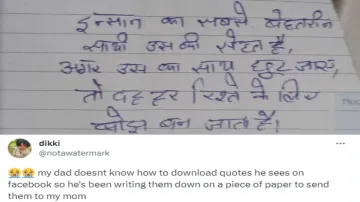 इन्सान का सबसे बेहतरीन
साथी उस की सेहत है,
अगर उस का साथ छूट जाए,
तो वह हर रिश्ते के लिए
बोझ बन जाता है।
dikki
@notawatermark
😭😭 my dad doesnt know how to download quotes he sees on
facebook so he's been writing them down on a piece of paper to send
them to my mom